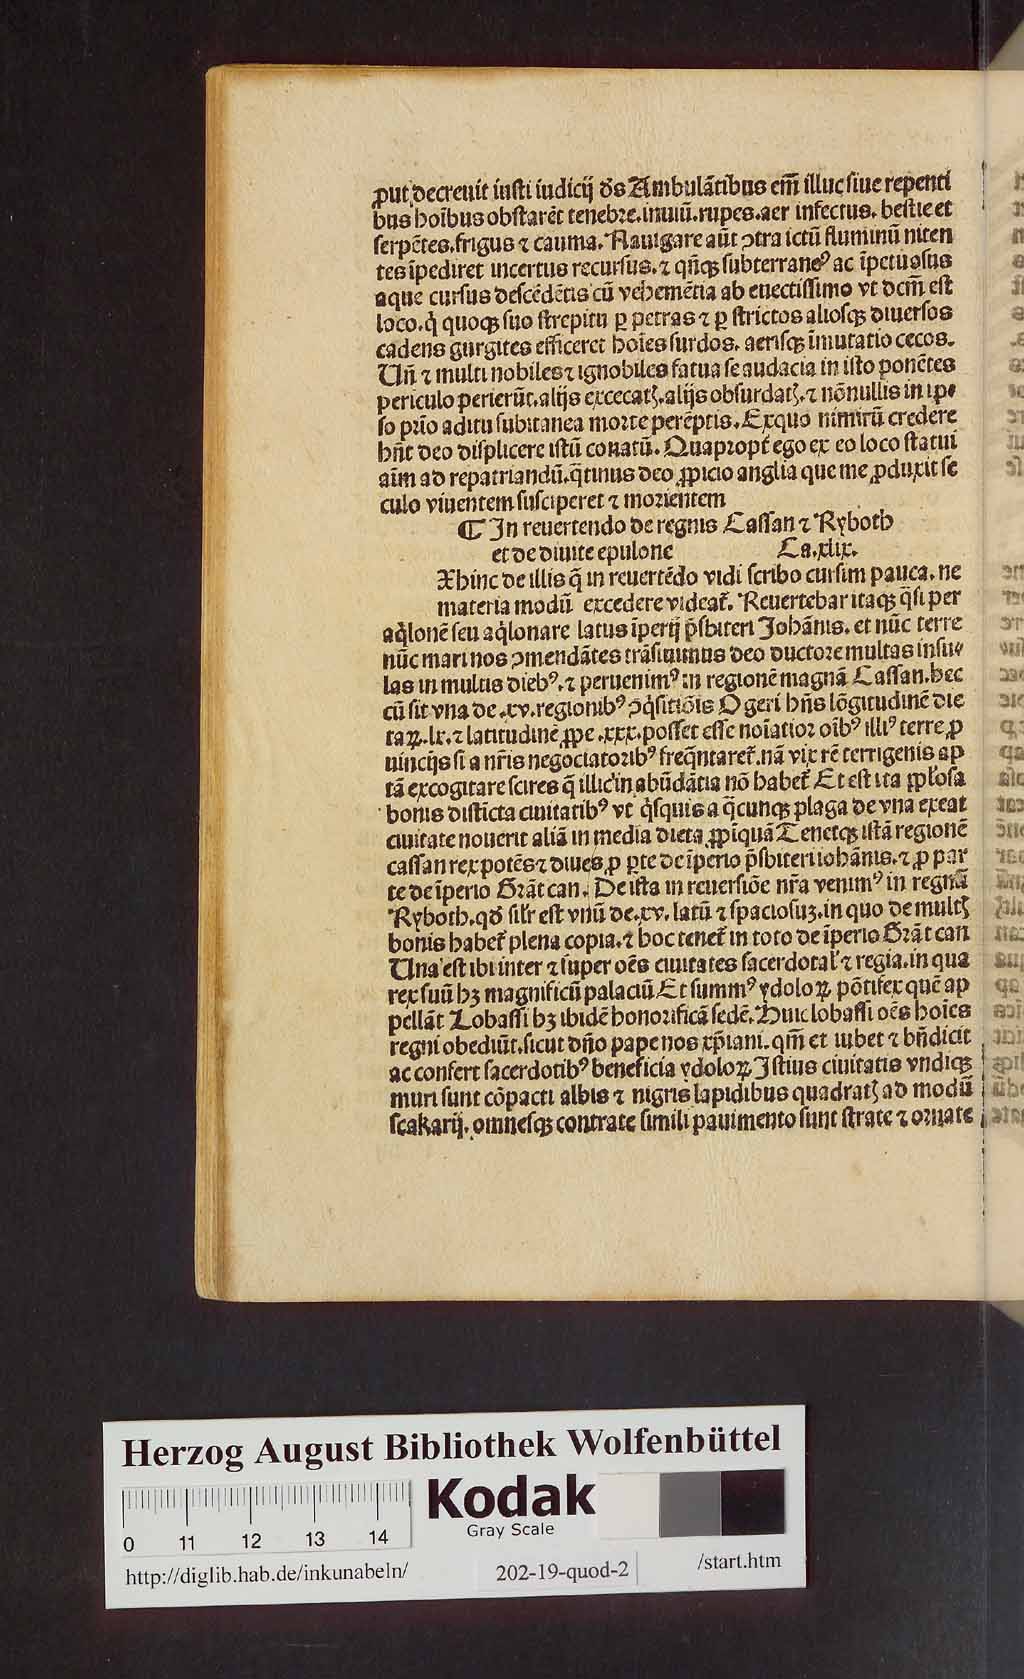 ꝓut decreuit iusti iudicij dͦs Ambulātibus em̄ illuc siue repenti
bus hoībus obstarēt tenebre. inuiū. rupes. aer infectus. bestie et
serpētes. frigus ⁊ cauma. Nauigare aūt ꝯtra ictū fluminū niten
tes īpediret incertus recursus. ⁊ qn̄qꝫ subterraneꝰ ac īpetuosus
aque cursus descēdētis cū vehemētia ab euectissimo vt dcm̄ est
loco. q̇ quoqꝫ suo strepitu ꝑ petras ⁊ ꝑ strictos aliosqꝫ diuersos
cadens gurgites efficeret hoīes surdos. aerisqꝫ īmutatio cecos.
Un̄ ⁊ multi nobiles ⁊ ignobiles fatua se audacia in isto ponētes
periculo perierūt. alijs excecatꝭ. alijs obsurdatꝭ. ⁊ nōnullis in ip
so prīo aditu subitanea morte perēptis. Exquo nimirū credere
hn̄t deo displicere istū conatū. Quapropt̄ ego ex eo loco statui
aīm ad repatriandū. q̄tinus deo ꝓpicio anglia que me ꝓduxit se
culo viuentem susciperet ⁊ morientem
¶ In reuertendo de regnis Cassan ⁊ Ryboth
et de diuite epulone Ca.xlix.
Xhinc de illis q̄ in reuertēdo vidi scribo cursim pauca. ne
materia modū excedere videat᷑. Reuertebar itaqꝫ q̄si per
aq̇lonē seu aq̇lonare latus īperij p̄sbiteri Johānis. et nūc terre
nūc mari nos ꝯmendātes trāsiuimus deo ductore multas insu
las in multis diebꝰ. ⁊ peruenimꝰ in regionē magnā Cassan. hec
cū sit vna de .xv. regionibꝰ ꝯq̇sitiōis Ogeri hn̄s lōgitudinē die
taꝝ .lx. ⁊ latitudinē ꝓpe .xxx. posset esse noīatior oībꝰ illiꝰ terre ꝓ
uincijs si a nr̄is negociatoribꝰ freq̄ntaret᷑. nā vix rē terrigenis ap
tā excogitare scires q̄ illic in abūdātia nō habet᷑ Et est ita ꝓplosa
bonis distīcta ciuitatibꝰ vt q̇squis a q̄cunqꝫ plaga de vna exeat
ciuitate nouerit aliā in media dieta ꝓpīquā Tenetqꝫ istā regionē
cassan rex potēs ⁊ diues ꝓ ꝑte de īperio p̄sbiteri iohānis. ⁊ ꝓ par
te de īperio Grāt can. De ista in reuersiōe nr̄a venimꝰ in regnā
Ryboth. qd̓ silr̄ est vnū de .xv. latū ⁊ spaciosuꝫ. in quo de multꝭ
bonis habet᷑ plena copia. ⁊ hoc tenet᷑ in toto de īperio Grāt can
Una est ibi inter ⁊ super oēs ciuitates sacerdotal̓ ⁊ regia. in qua
rex suū hꝫ magnificū palaciū Et summꝰ ydoloꝝ pōtifex quē ap
pellāt Lobassi hꝫ ibidē honorificā sedē. Huic lobassi oēs hoīes
regni obediūt. sicut dn̄o pape nos xp̄iani. qm̄ et iubet ⁊ bn̄dicit
ac confert sacerdotibꝰ beneficia ydoloꝝ. Istius ciuitatis vndiqꝫ
muri sunt cōpacti albis ⁊ nigris lapidibus quadratꝭ ad modū
scakarij. omnesqꝫ contrate simili pauimento sunt strate ⁊ ornate
Herzog August Bibliothek Wolfenbüttel
0 11 12 13 14
Kodak
Gray Scale
http://diglib.hab.de/inkunabeln/ 202-19-quod-2 /start.htm